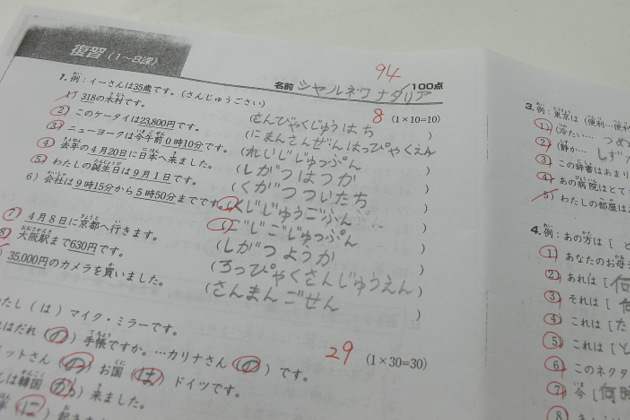 復習 (1～8課)
名前 シャルネワ ナタリア 94/100点
1. 例：イーさんは35歳です。(さんじゅうごさい) 8 (1×10=10)
1) 318の木村です。 (さんびゃくじゅうはち)
2) このケータイは23,800円です。 (にまんさんぜんはっぴゃくえん)
3) ニューヨークは今午前0時10分です。 (れいじじゅっぷん)
4) 去年の4月20日に日本へ来ました。 (しがつはつか)
5) わたしの誕生日は9月1日です。 (くがつついたち)
6) 会社は9時15分から5時50分までです。 (くじじゅうごふん)
(ごじごじゅっぷん)
7) 4月8日に京都へ行きます。 (しがつようか)
8) 大阪駅まで630円です。 (ろっぴゃくさんじゅうえん)
35,000円のカメラを買いました。 (さんまんごせん)
29 (1×30=30)
たし ( は ) マイク・ミラーです。
はだれ ( の ) 手帳ですか。…カリナさん ( の ) です。
ットさん ( の ) お国 ( は ) ドイツです。
は韓国 ( から ) 来ました。
( に )
3. 例：東京は (便利…便利
1) (冷た…
つめ
2) (静か…
しず
3) この辞書はあまり
4) あの病院はとて
5) わたしの部屋は
4. 例：あの方は [ ど
1) あなたのお母
2) あれは [ 何
3) それは [ 何
4) これは [ た
5) これは [ ど
6) このネクタ
7) 今 [ 何時
8)